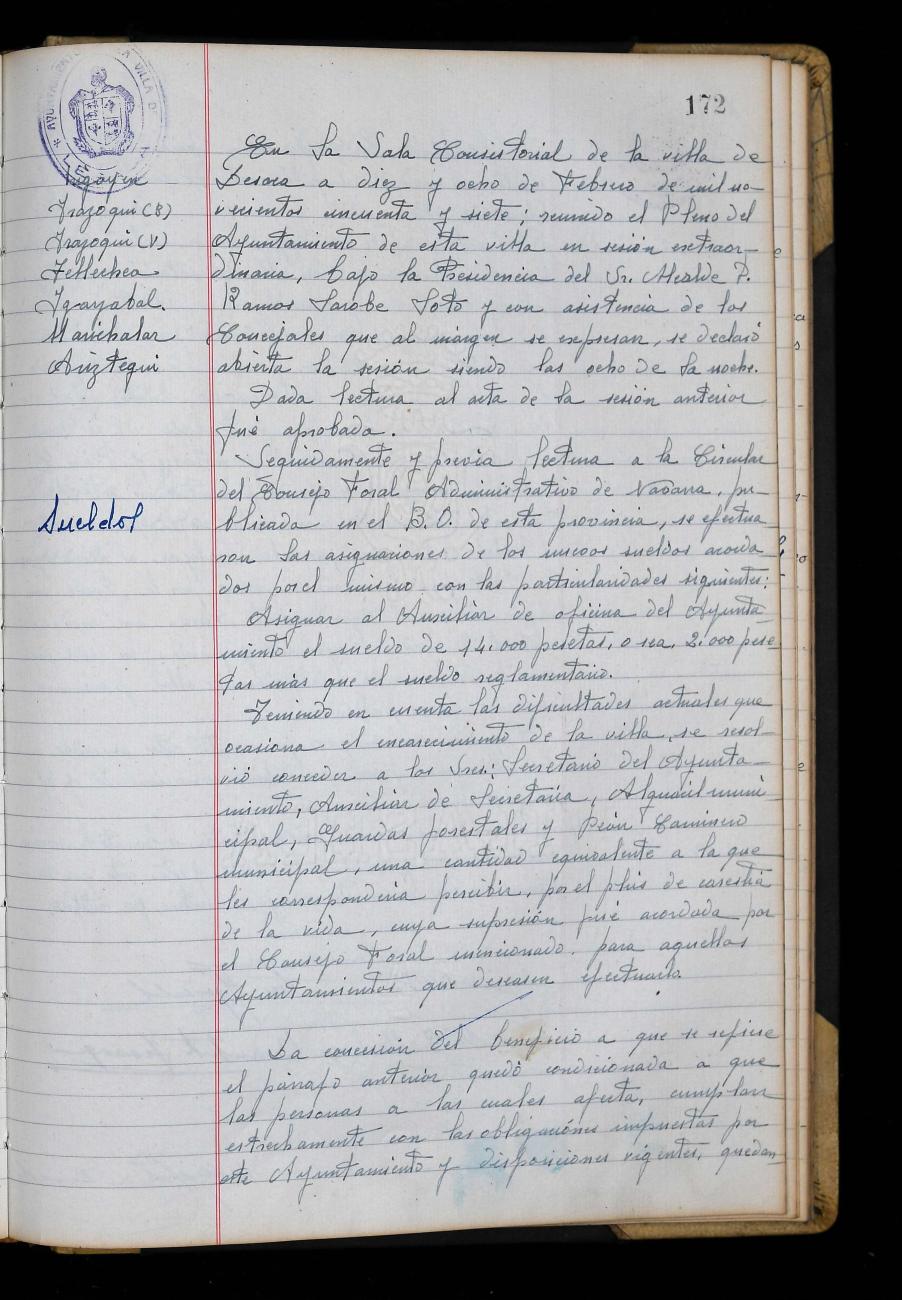 172
AYUNTAMIENTO VILLA D
Irazoqui (B)
Irazoqui (V)
Tellechea
Igayabal.
Marichalar
Ariztegui
Sueldos
En la Sala Consistorial de la villa de
Lesaca a diez y ocho de Febrero de mil no-
vecientos cincuenta y siete; reunido el Pleno del
Ayuntamiento de esta villa en sesión extraor-
dinaria, bajo la Presidencia del Sr. Alcalde D.
Ramos Sarobe Soto y con asistencia de los
Concejales que al margen se expresan, se declaró
abierta la sesión siendo las ocho de la noche.
Dada lectura al acta de la sesión anterior
fué aprobada.
Seguidamente y previa lectura a la Circular
del Consejo Foral Administrativo de Navarra, pu-
blicada en el B.O. de esta provincia, se efectua-
ron las asignaciones de los nuevos sueldos acorda-
dos por el mismo con las particularidades siguientes:
Asignar al Auxiliar de oficina del Ayunta-
miento el sueldo de 14.000 pesetas, o sea, 2.000 pese-
tas más que el sueldo reglamentario.
Teniendo en cuenta las dificultades actuales que
ocasiona el encarecimiento de la villa, se resol-
vió conceder a los Sres: Secretario del Ayunta-
miento, Auxiliar de Secretaria, Alguacil muni-
cipal, Guardas forestales y Peón Caminero
municipal, una cantidad equivalente a la que
les correspondería percibir, por el plus de carestía
de la vida, cuya supresión fué acordada por
el Consejo Foral mencionado para aquellos
Ayuntamientos que deseasen efectuarlo.
La concesión del beneficio a que se refiere
el párrafo anterior quedó condicionada a que
las personas a las cuales afecta, cumplan
estrechamente con las obligaciones impuestas por
este Ayuntamiento y disposiciones vigentes, quedan-